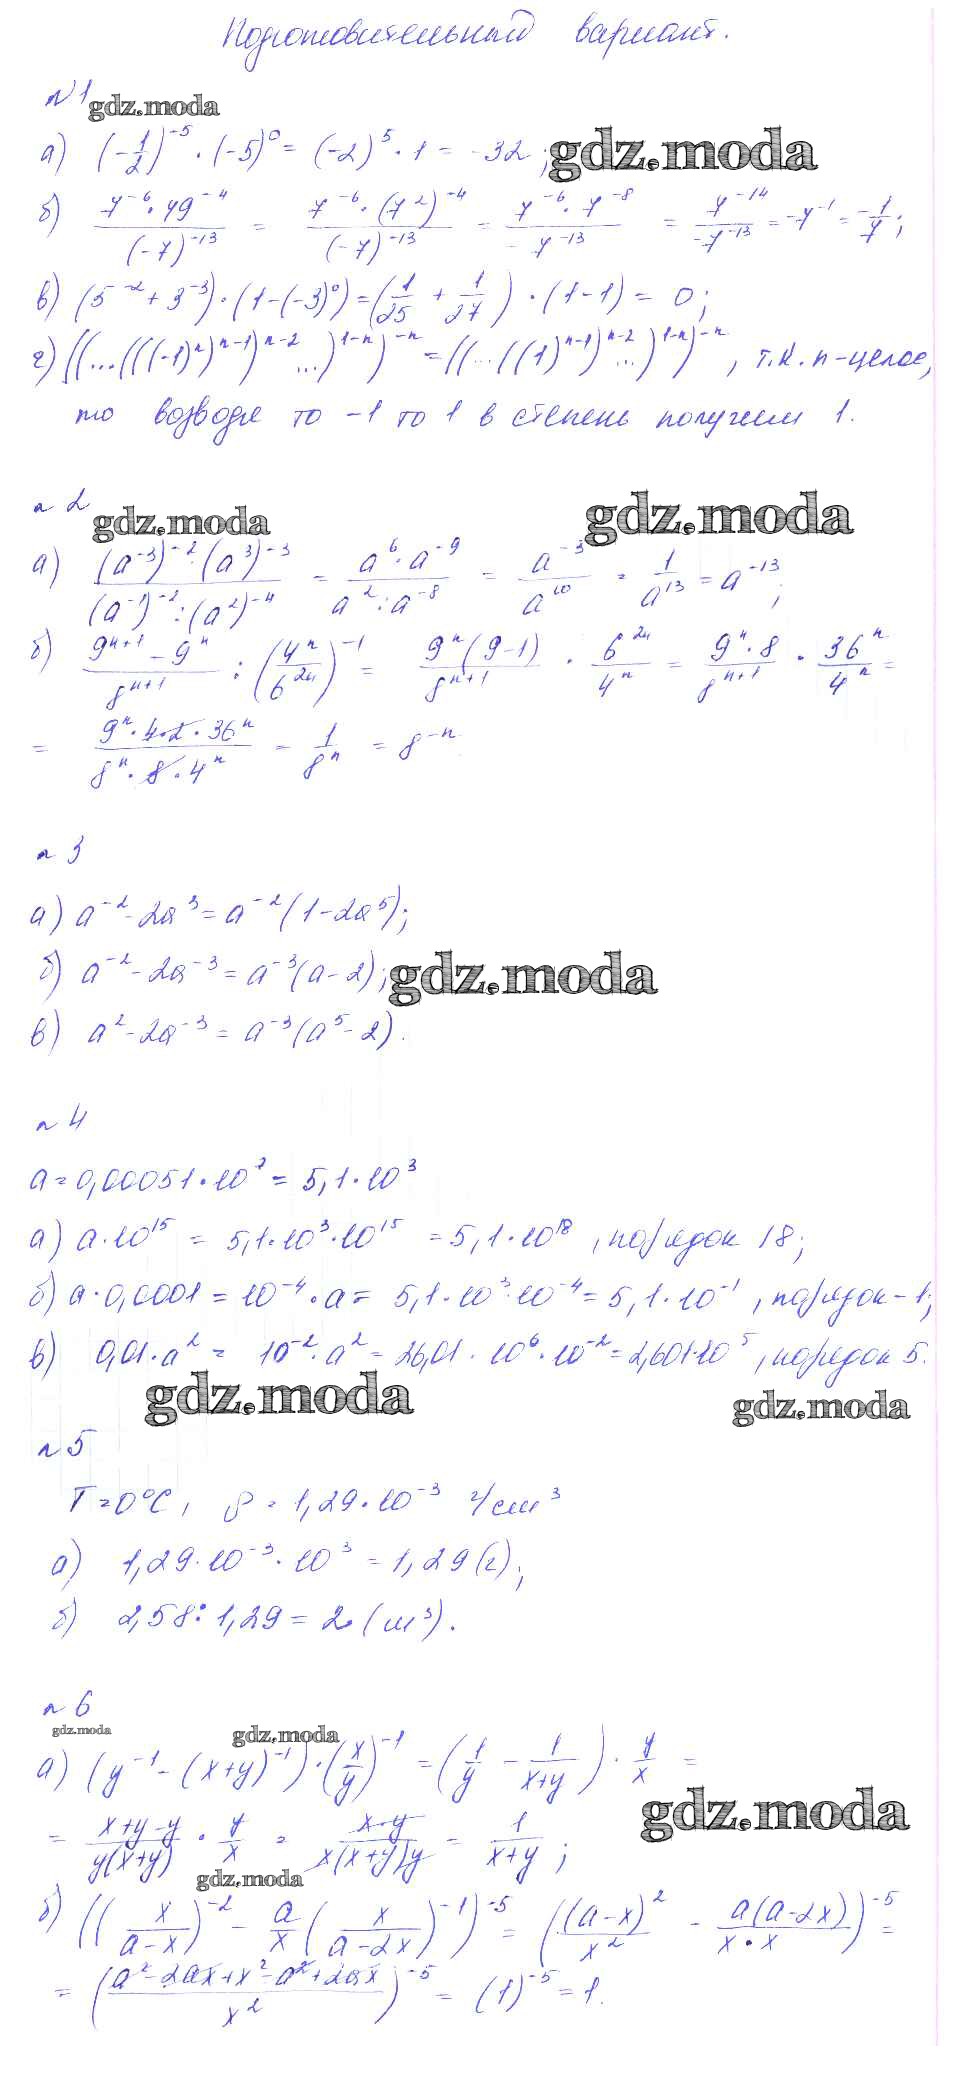 Подготовительный вариант.
№1
gdz.moda
а) (-1/2)^-5 · (-5)^0 = (-2)^5 · 1 = -32;
gdz.moda
б) 7^-6 · 49^-4 / (-7)^-13 = 7^-6 · (7^2)^-4 / (-7)^-13 = 7^-6 · 7^-8 / -7^-13 = 7^-14 / -7^-13 = -7^-1 = -1/7;
в) (5^-2 + 3^-3) · (1-(-3)^0) = (1/25 + 1/27) · (1-1) = 0;
г) ((...(((-1)^n)^n-1)^n-2 ...)^1-n)^-n = ((...((1)^n-1)^n-2 ...)^1-n)^-n, т.к. n-целое,
то возводя то -1 то 1 в степень получим 1.
n 2
gdz.moda
gdz.moda
а) (a^-3)^-2 · (a^3)^-3 / (a^-1)^-2 : (a^2)^-4 = a^6 · a^-9 / a^2 : a^-8 = a^-3 / a^10 = 1/a^13 = a^-13;
б) 9^n+1 - 9^n / 8^n+1 : (4^n / 6^2n)^-1 = 9^n(9-1) / 8^n+1 · 6^2n / 4^n = 9^n · 8 / 8^n+1 · 36^n / 4^n =
= 9^n · 4 · 2 · 36^n / 8^n · 8 · 4^n = 1/8^n = 8^-n
n 3
а) a^-2 - 2a^3 = a^-2(1-2a^5);
б) a^-2 - 2a^-3 = a^-3(a-2);
gdz.moda
в) a^2 - 2a^-3 = a^-3(a^5-2).
n 4
a = 0,00051 · 10^7 = 5,1 · 10^3
а) a · 10^15 = 5,1 · 10^3 · 10^15 = 5,1 · 10^18, порядок 18;
б) a · 0,0001 = 10^-4 · a = 5,1 · 10^3 · 10^-4 = 5,1 · 10^-1, порядок -1;
в) 0,01 · a^2 = 10^-2 · a^2 = 26,01 · 10^6 · 10^-2 = 2,601·10^5, порядок 5.
gdz.moda
gdz.moda
n 5
T = 0°C, ρ = 1,29 · 10^-3 г/см^3
а) 1,29 · 10^-3 · 10^3 = 1,29 (г);
б) 2,58 : 1,29 = 2 (м^3).
n 6
gdz.moda
gdz.moda
а) (y^-1 - (x+y)^-1) · (x/y)^-1 = (1/y - 1/x+y) · y/x =
gdz.moda
= x+y-y / y(x+y) · y/x = x·y / x(x+y)y = 1/x+y;
gdz.moda
б) ((x/a-x)^-2 - a/x (x/a-2x)^-1)^-5 = ((a-x)^2 / x^2 - a(a-2x) / x·x)^-5 =
= (a^2-2ax+x^2-a^2+2ax / x^2)^-5 = (1)^-5 = 1.